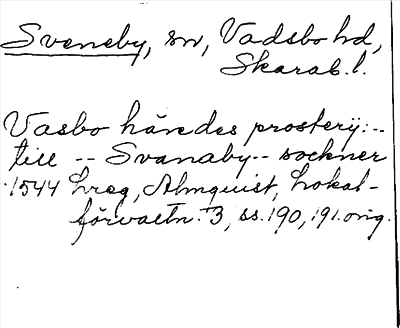 Sveneby, sn, Vadsbo hd,
Skarab. l.
Vasbo häredes prosterij:--
till -- Svanaby -- sockner
1544 Lreg, Almquist, Lokal-
förvaltn. 3, ss. 190, 191. orig.